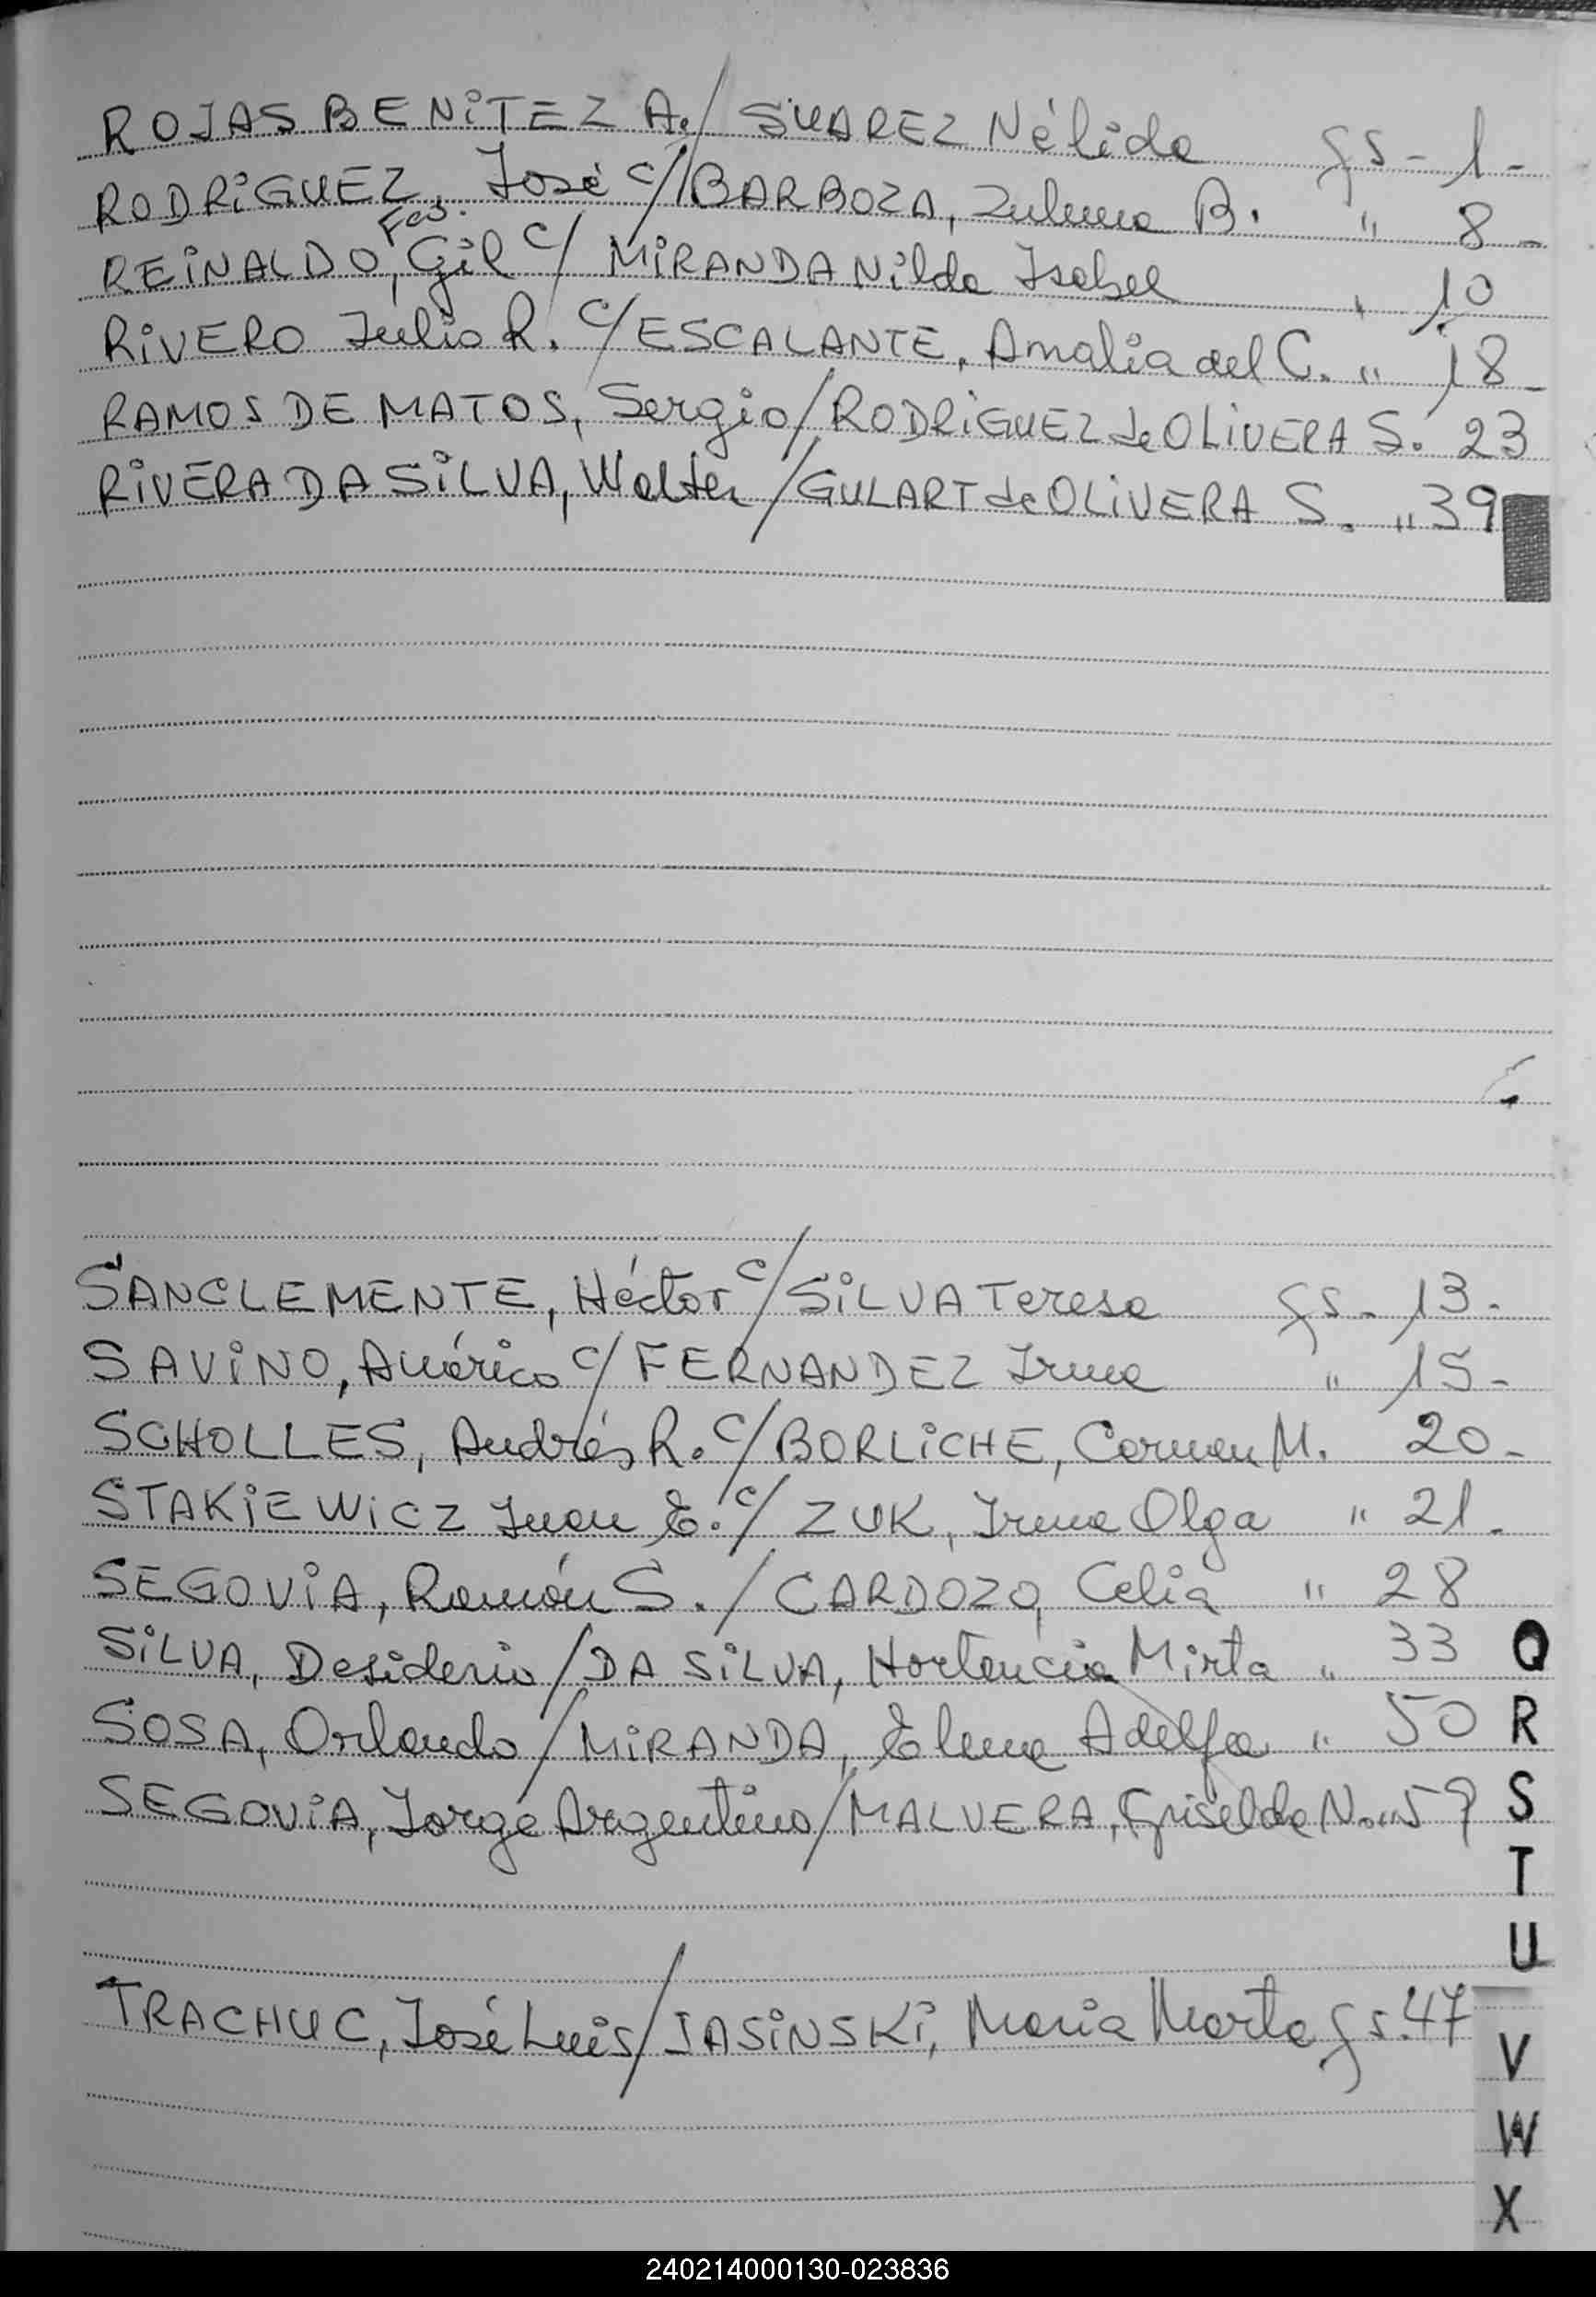 ROJAS BENITEZ A. / SUAREZ Nélida fs - 1 -
RODRIGUEZ, José c/ BARBOZA, Zulema B. " 8 -
REINALDO, Fco. Gil c/ MIRANDA Nilda Isabel " 10
RIVERO Julio R. c/ ESCALANTE, Amalia del C. " 18 -
RAMOS DE MATOS, Sergio / RODRIGUEZ de OLIVERA S. 23
RIVERA DA SILVA, Walter / GULART de OLIVERA S. " 39
SANCLEMENTE, Héctor c/ SILVA Teresa fs - 13 -
SAVINO, Américo c/ FERNANDEZ Irma " 15 -
SCHOLLES, Andrés R. c/ BORLICHE, Carmen M. 20 -
STAKIEWICZ Juan E. c/ ZUK, Irma Olga " 21 -
SEGOVIA, Ramón S. / CARDOZO, Celia " 28
SILVA, Desiderio / DA SILVA, Hortencia Mirta " 33
SOSA, Orlando / MIRANDA, Elena Adelfa " 50
SEGOVIA, Jorge Argentino / MALVERA, Griselda N. " 59
TRACHUC, José Luis / JASINSKI, Maria Marta fs. 47
Q
R
S
T
U
V
W
X
240214000130-023836